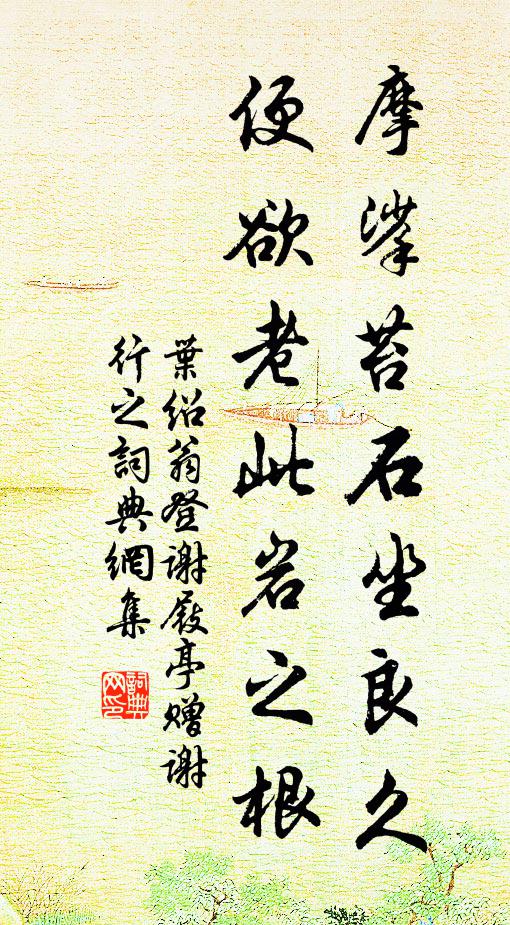 摩挲苔石坐良久
便欲老此岩之根
葉紹翁登謝屐亭贈謝
行之詞典網集
詞典
网印